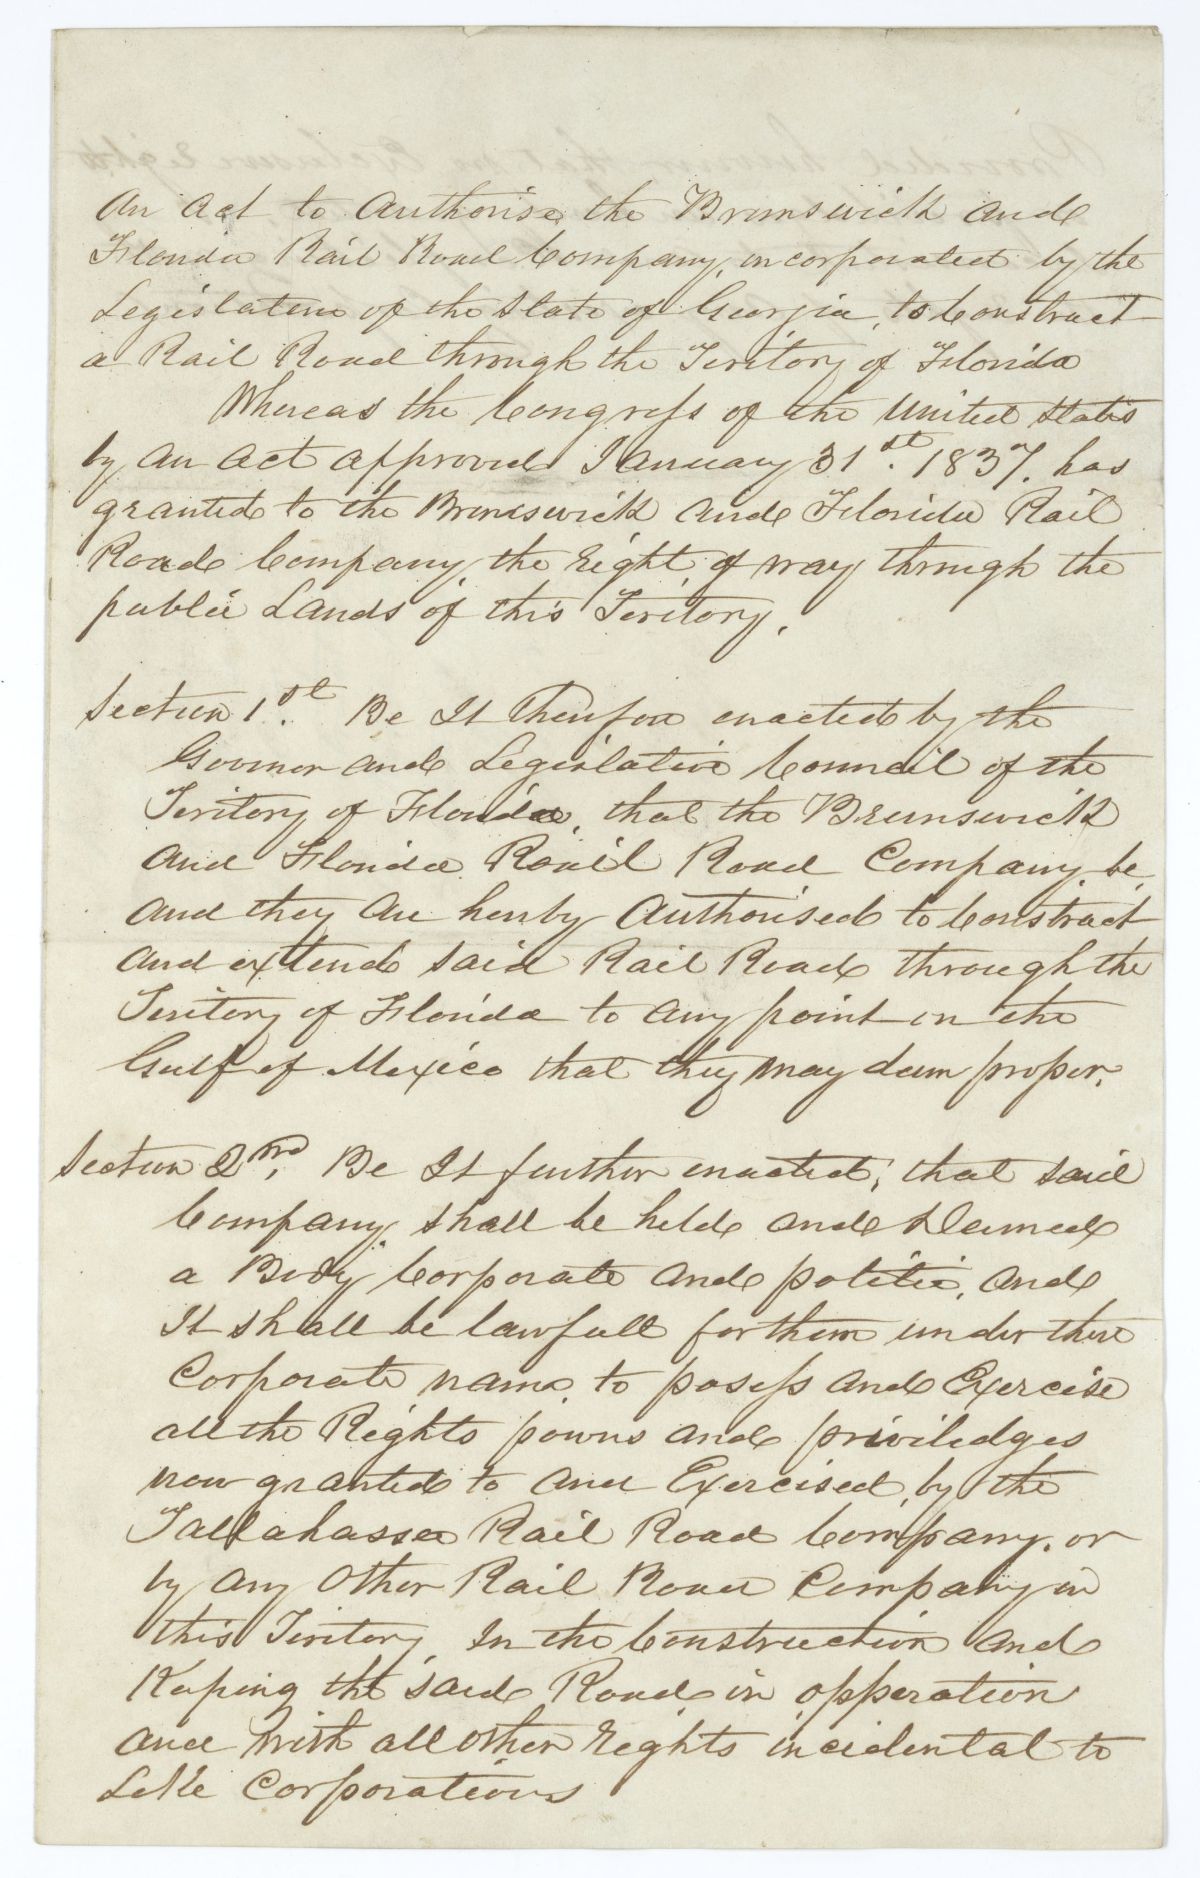 An Act to Authorise the Brunswick and
Florida Rail Road Company, incorporated by the
Legislature of the State of Georgia, to Construct
a Rail Road through the Teritory of Florida
Whereas the Congress of the United States
by an act approved January 31st. 1837. has
granted to the Brunswick and Florida Rail
Road Company, the right of way through the
public Lands of this Teritory.
Section 1st. Be It Therefore enacted by the
Governor and Legislative Council of the
Teritory of Florida, that the Brunswick
and Florida Rail Road Company, be,
and they are hereby Authorised to Construct
and extend said Rail Road through the
Teritory of Florida to any point in the
Gulf of Mexico that they may deem proper.
Section 2nd. Be It further enacted, that said
Company, shall be held and Deemed
a Body Corporate and politic, and
It shall be lawfull for them under there
Corporate name, to posess and Exercise
all the Rights powers and priviledges
now granted to and Exercised, by the
Tallahassee Rail Road Company, or
by any Other Rail Road Company in
this Teritory, In the Construction and
Keeping the said Road in opperation
and With all other rights incidental to
Like Corporations